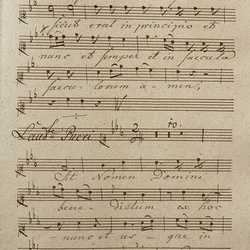 sicut erat in principio et
nunc et semper et in saecula
saecu - lorum a - men,
Laud: Pueri 2 10.
Sit Nomen Domini
bene - dictum ex hoc
nunc et us - que in